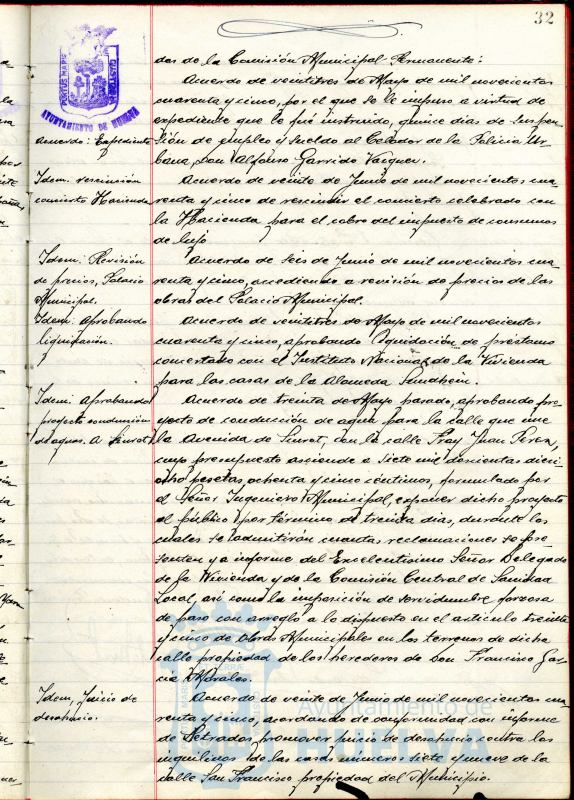 32
PORTUS MARIS
CUSTODIA
AYUNTAMIENTO DE HUELVA
das de la Comisión Municipal Permanente:
Acuerdo de veintitres de Mayo de mil novecientos
cuarenta y cinco, por el que se le impuso a virtud de
expediente que le fué instruido, quince dias de suspen
Acuerdo: Expediente
sión de empleo y sueldo al Celador de la Policía Ur
bana, Don Alfonso Garrido Vazquez.
Idem: rescisión
concierto Hacienda
Acuerdo de veinte de Junio de mil novecientos cua
renta y cinco de rescindir el concierto celebrado con
la Hacienda para el cobro del impuesto de consumos
de lujo
Idem: Revisión
de precios, Palacio
Municipal.
Acuerdo de seis de Junio de mil novecientos cua
renta y cinco, accediendo a revisión de precios de las
obras del Palacio Municipal.
Idem: Aprobando
liquidación.
Acuerdo de veintitres de Mayo de mil novecientos
cuarenta y cinco, aprobando liquidación de préstamo
concertado con el Instituto Nacional de la Vivienda
para las casas de la Alameda Sundheim.
Idem: Aprobando
proyecto conducción
de aguas. A. Siurot
Acuerdo de treinta de Mayo pasado, aprobando pro
yecto de conducción de agua para la calle que une
la Avenida de Siurot, con la calle Fray Juan Perez,
cuyo presupuesto asciende a siete mil doscientas dieci
ocho pesetas ochenta y cinco céntimos, formulado por
el Señor Ingeniero Municipal, exponer dicho proyecto
al público por término de treinta dias, durante los
cuales se admitirán cuantas reclamaciones se pre
senten y a informe del Excelentísimo Señor Delegado
de la Vivienda y de la Comisión Central de Sanidad
Local, así como la imposición de servidumbre forzosa
de paso con arreglo a lo dispuesto en el articulo treinta
y cinco de Obras Municipales en los terrenos de dicha
calle propiedad de los herederos de Don Francisco Gar
cía Morales.
Idem, Juicio de
desahucio.
Acuerdo de veinte de Junio de mil novecientos cua
renta y cinco, acordando de conformidad con informe
de Letrados, promover juicio de desahucio contra los
inquilinos de las casas números siete y nueve de la
calle San Francisco propiedad del Municipio.
Ayuntamiento de
HUELVA